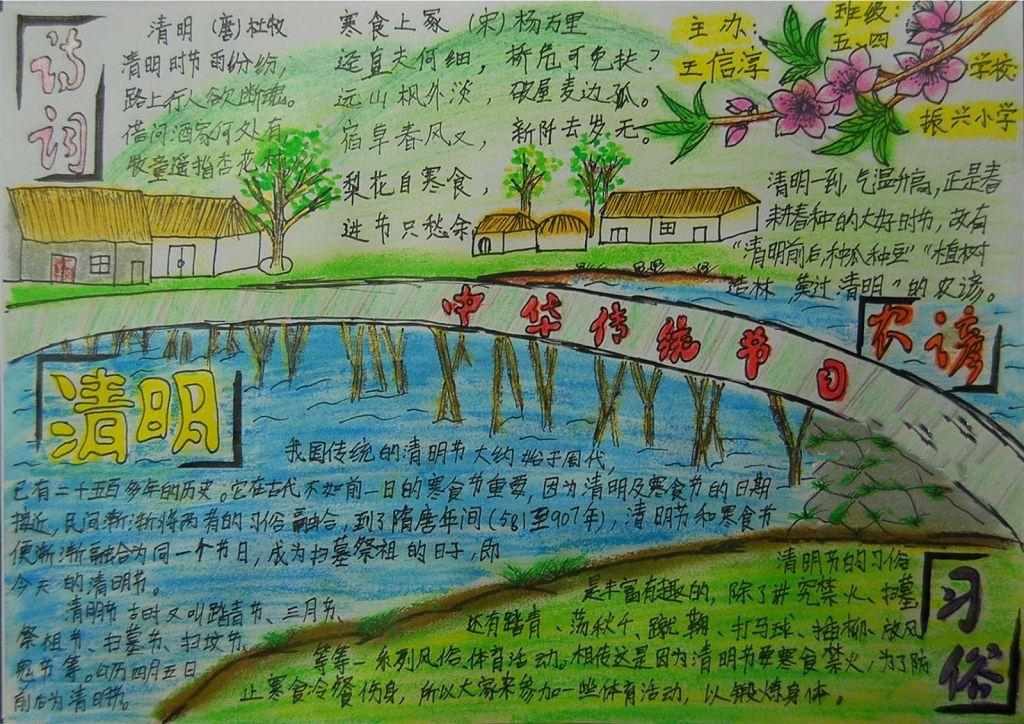 诗词
清明 (唐)杜牧
清明时节雨纷纷,
路上行人欲断魂。
借问酒家何处有
牧童遥指杏花村
寒食上冢 (宋)杨万里
迳直夫何细, 桥危可免扶?
远山枫外淡, 破屋麦边孤。
宿草春风又, 新阡去岁无。
梨花自寒食,
进节只愁余
主办:
王信淳
班级:
五、四
学校:
振兴小学
清明一到,气温升高,正是春
耕春种的大好时节,故有
“清明前后,种瓜种豆”“植树
造林 莫过清明”的农谚。
农谚
中华传统节日
清明
我国传统的清明节大约始于周代,
已有二千五百多年的历史。它在古代不如前一日的寒食节重要,因为清明及寒食节的日期
接近,民间渐渐将两者的习俗融合,到了隋唐年间(581至907年),清明节和寒食节
便渐渐融合为同一个节日,成为扫墓祭祖的日子,即
今天的清明节。
清明节古时又叫踏青节、三月节、
祭祖节、扫墓节、扫坟节、
鬼节等。公历四月五日
前后为清明节。
习俗
清明节的习俗
是丰富有趣的,除了讲究禁火、扫墓
还有踏青、荡秋千、蹴鞠、打马球、插柳、放风
等等一系列风俗体育活动。相传这是因为清明节要寒食禁火,为了防
止寒食冷餐伤身,所以大家来参加一些体育活动,以锻炼身体。